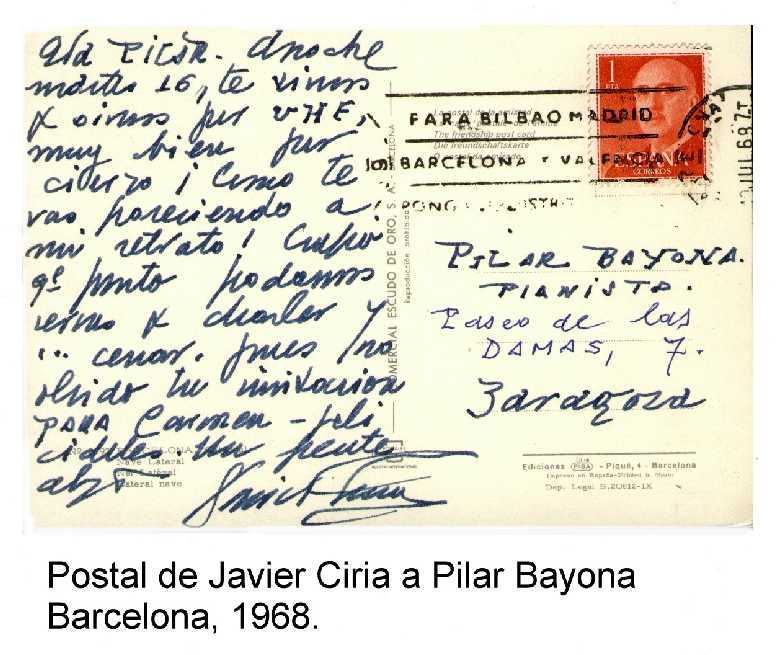 qda Pilar. Anoche
martes 16, te vimos
y oimos por UHF,
muy bien por
cierzo ¡ Como te
vas pareciendo a
mi retrato! 
pronto podamos
vernos y charlar y
... cenar. pues no
olvido tu invitacion
PARA Carmen - feli
cidades. Un fuerte
abzo
La postal de la amistad
The friendship post card
Die freundschaftskarte
COMERCIAL ESCUDO DE ORO, S. A. BARCELONA
Reproducción prohibida
BARCELONA
Nave Lateral
Nef Latéral
Lateral nave
1
PTA
CORREOS
PARA BILBAO MADRID
BARCELONA Y VALENCIA
PONGA DISTRITO
JUL 68
PILAR BAYONA.
PIANISTA.
Paseo de las
DAMAS, 7.
Zaragoza
Ediciones FISA - Piqué, 4 - Barcelona
Impreso en España
Dep. Legal B.20612-IX
Postal de Javier Ciria a Pilar Bayona
Barcelona, 1968.